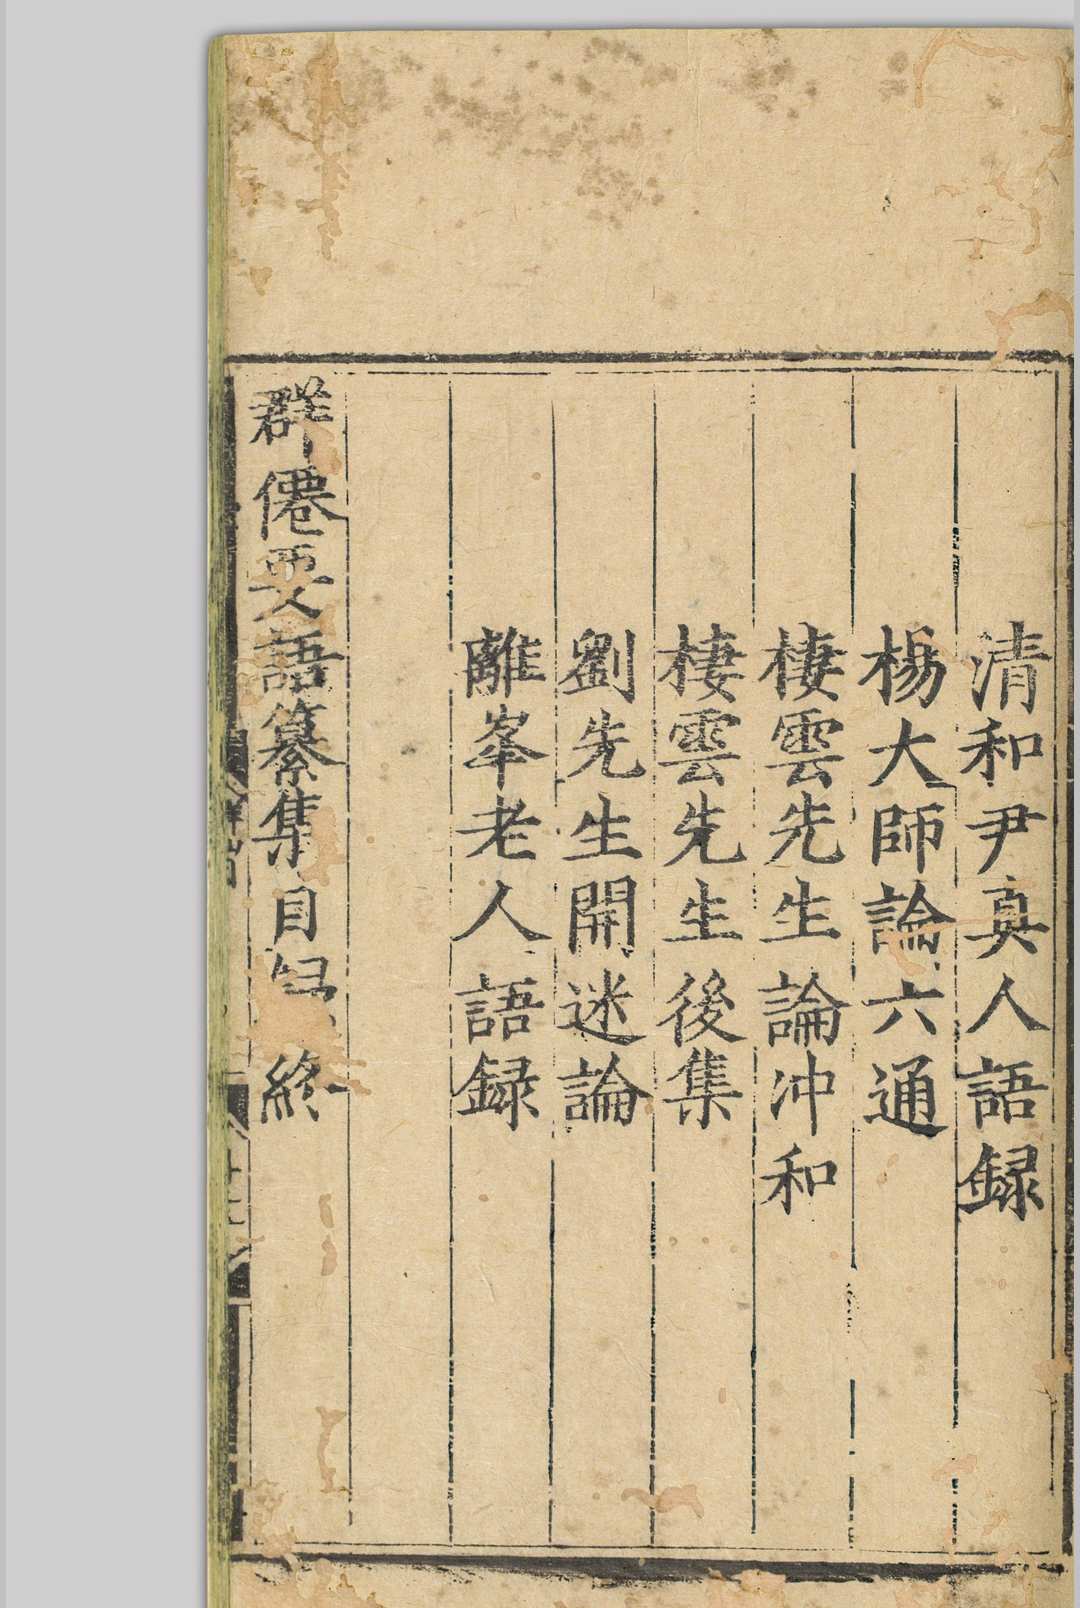 清和尹真人語録
楊大師論六通
棲雲先生論沖和
棲雲先生後集
劉先生開迷論
離峯老人語録
群僊要語纂集目録終